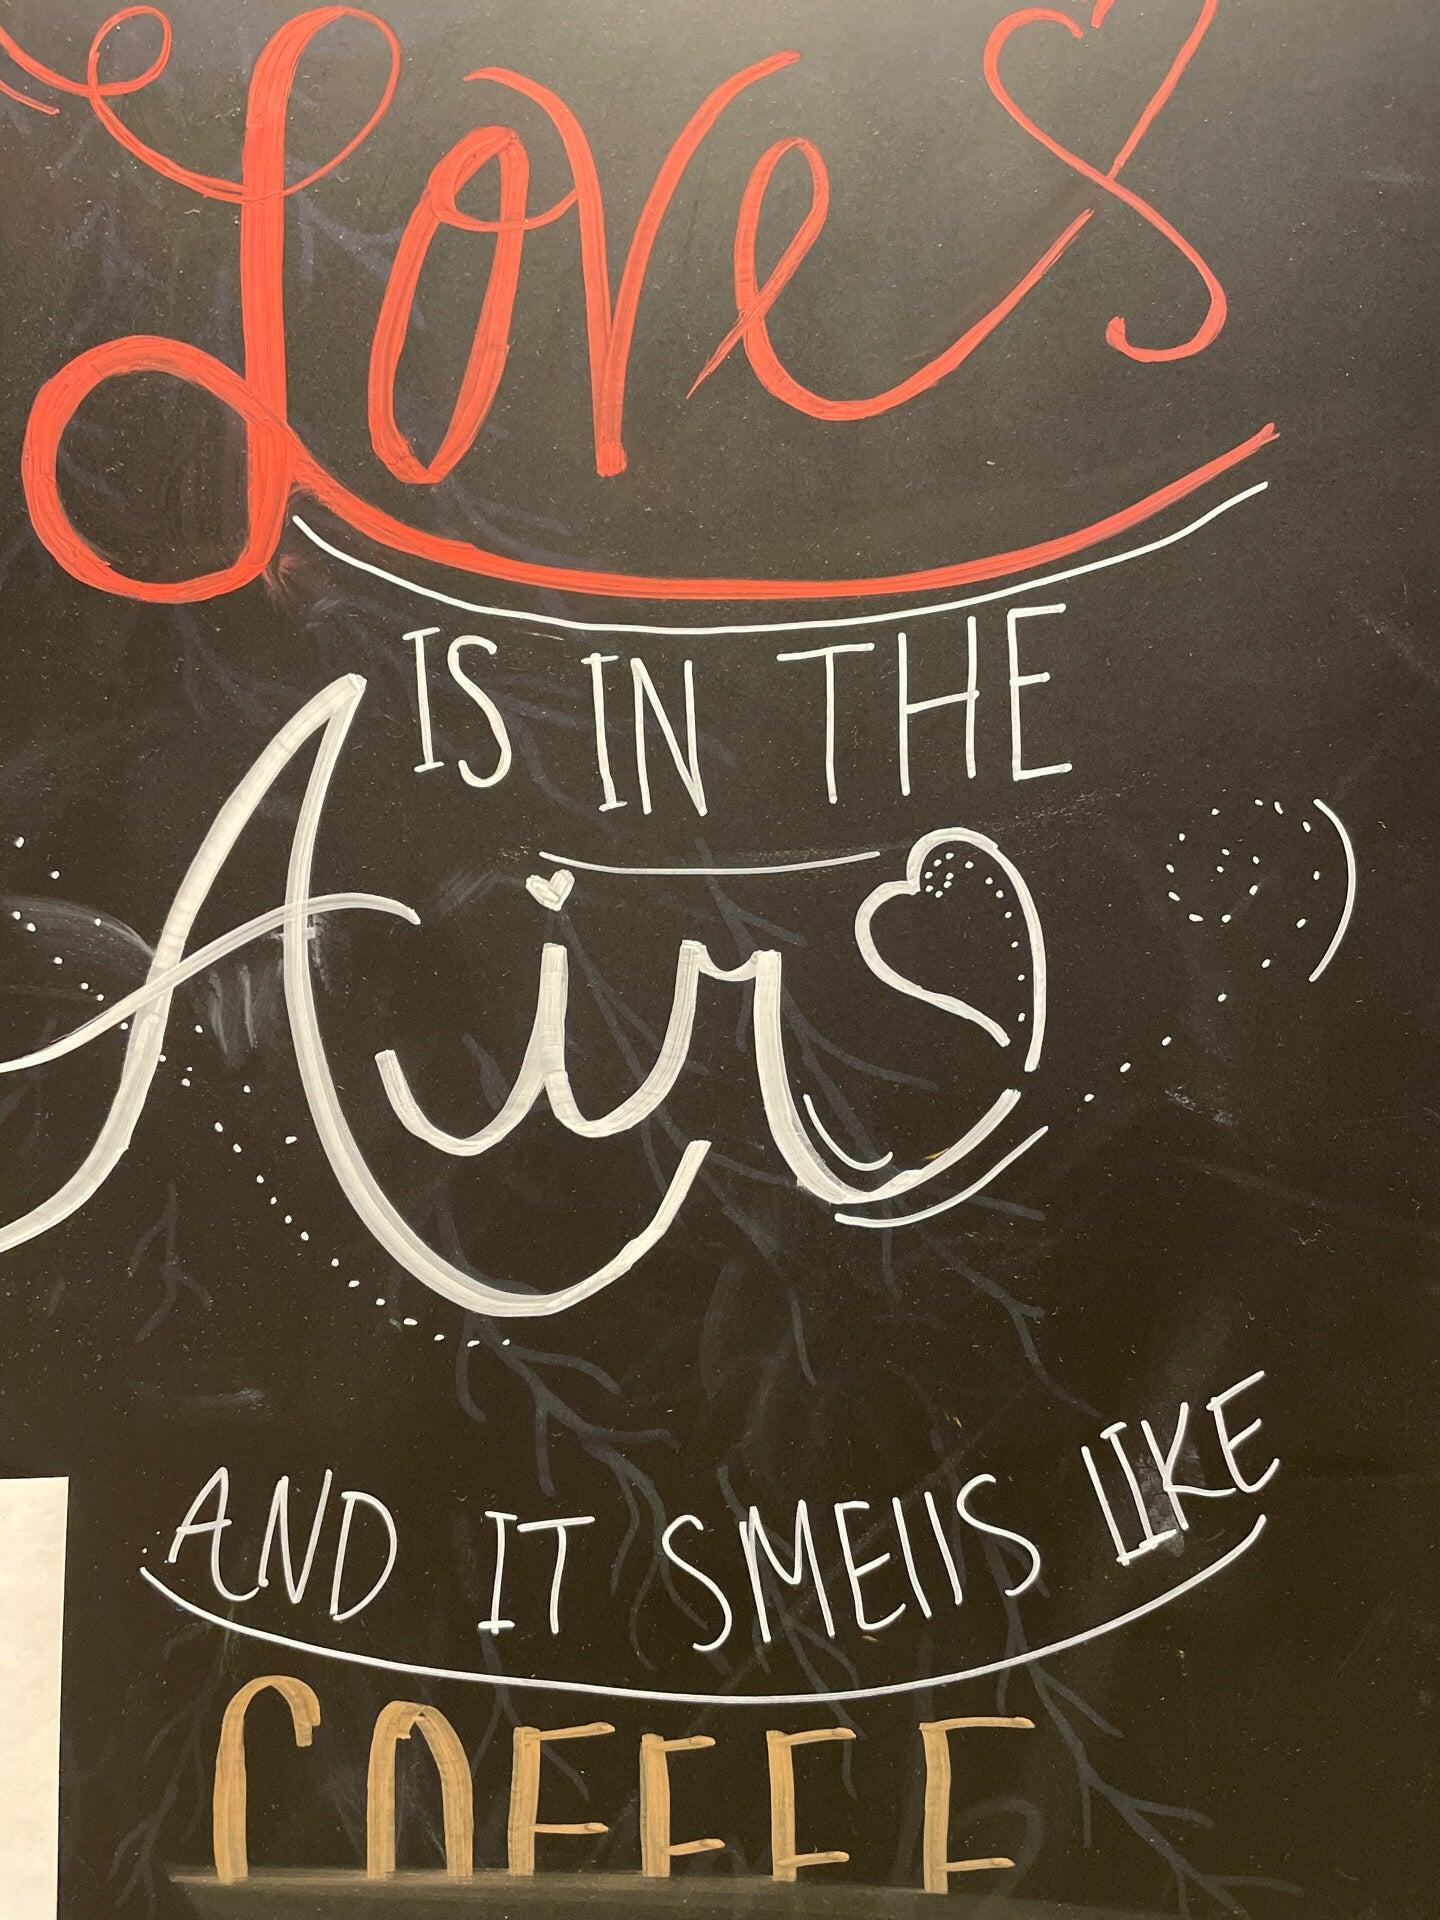 Love
IS IN THE
Air
AND IT SMEllS LIKE
COFFEE